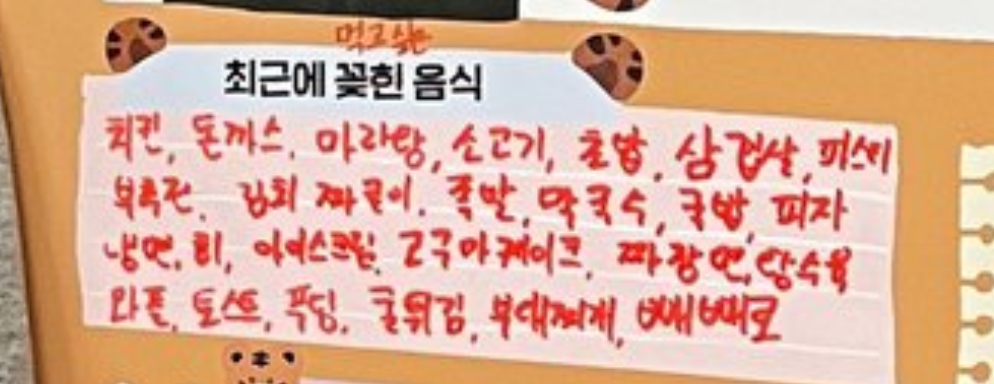 먹고싶은
최근에 꽂힌 음식
치킨, 돈까스, 마라탕, 소고기, 초밥, 삼겹살, 피스타
부추전, 김치짜글이, 족발, 막국수, 국밥, 피자
냉면, 회, 아이스크림, 고구마케이크, 짜장면, 탕수육
와플, 토스트, 푸딩, 굴튀김, 부대찌개, 빼빼로